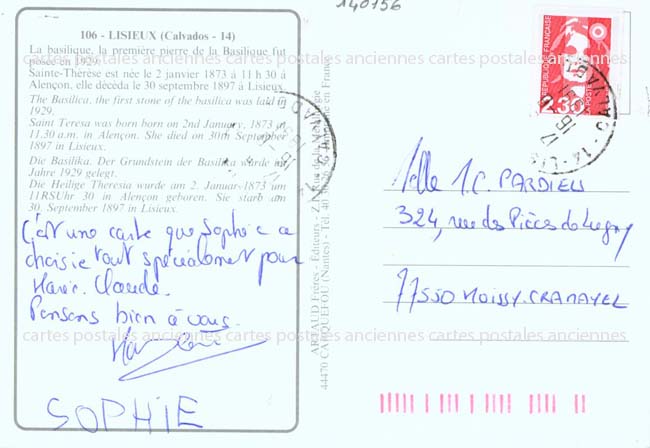 140156
106 - LISIEUX (Calvados - 14)
La basilique, la première pierre de la Basilique fut
posée en 1929.
Sainte-Thérèse est née le 2 janvier 1873 à 11 h 30 à
Alençon, elle décéda le 30 septembre 1897 à Lisieux
The Basilica, the first stone of the basilica was laid in
1929.
Saint Teresa was born born on 2nd January, 1873 at
11.30 a.m. in Alençon. She died on 30th September
1897 in Lisieux.
Die Basilika. Der Grundstein der Basilika würde im
Jahre 1929 gelegt.
Die Heilige Theresia wurde am 2. January 1873 um
11RSUhr 30 in Alençon geboren. Sie starb am
30. September 1897 in Lisieux.
C'est une carte que Sophie a
choisie tout spécialement pour
Marie. Claude.
Pensons bien à vous.
SOPHIE
ARTAUD Frères - Éditeurs - Z.I. Rue de la Métallurgie
44470 CARQUEFOU (Nantes) - Tél. 40 en France
REPUBLIQUE FRANÇAISE
LA POSTE
2,30
CALVADOS
14 - LIS
Melle M.C. PARDIEU
324, rue des Pièces de Lugny
77550 MOISSY. CRAMAYEL
cartes postales anciennes cartes postales anciennes cartes postales anciennes cartes postales anciennes
cartes postales anciennes cartes postales anciennes cartes postales anciennes cartes postales anciennes